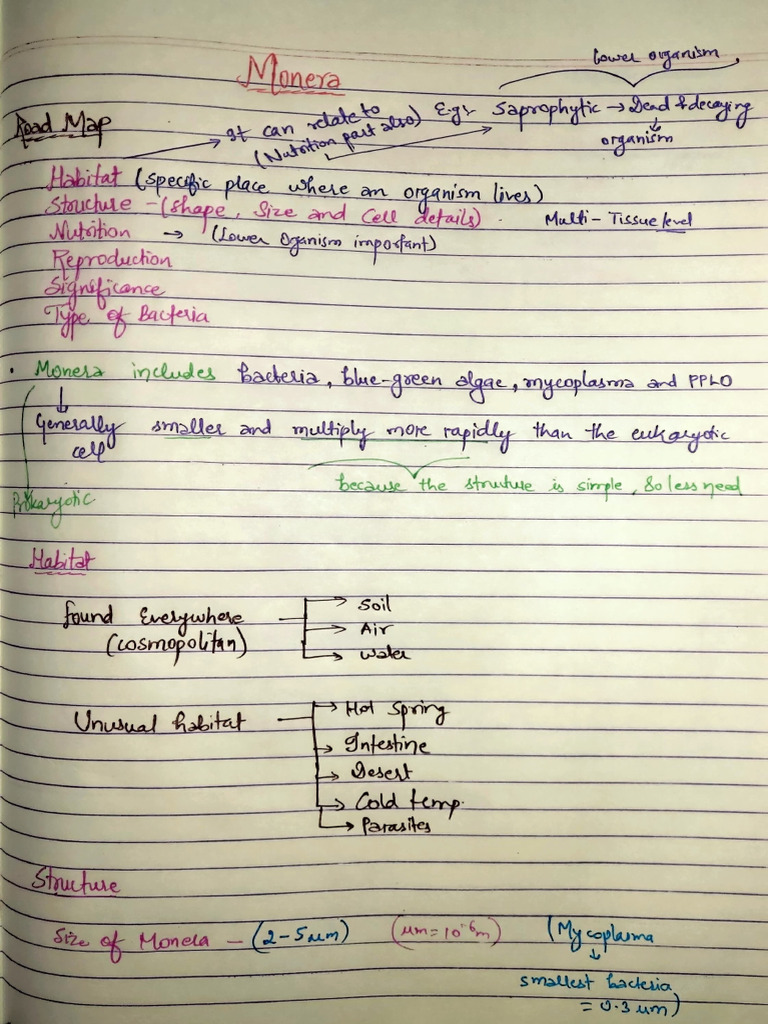 Lower organism
Monera
Road Map
It can relate to
(Nutrition part also)
Eg:- Saprophytic → Dead & decaying
organism
Habitat (specific place where an organism lives)
Structure - (Shape, Size and Cell details). Multi-Tissue level
Nutrition → (Lower Organism important)
Reproduction
Significance
Type of Bacteria
• Monera includes bacteria, blue-green algae, mycoplasma and PPLO
Generally smaller and multiply more rapidly than the eukaryotic
cell
because the structure is simple, so less need
Prokaryotic
Habitat
Found Everywhere
(cosmopolitan)
→ Soil
→ Air
→ Water
Unusual habitat
→ Hot Spring
→ Intestine
→ Desert
→ Cold temp.
→ Parasites
Structure
Size of Monera - (2-5 μm) (μm = 10⁻⁶m) (Mycoplasma
smallest bacteria
= 0.3 μm)